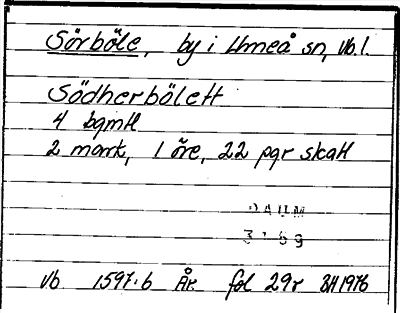 Sörböle, by i Umeå sn, Vb.l.
Södherbölett
4 bgmtl
2 mark, 1 öre, 22 pgr skatt
DAUM
3169
Vb 1597:6 Är fol 29r BH 1976